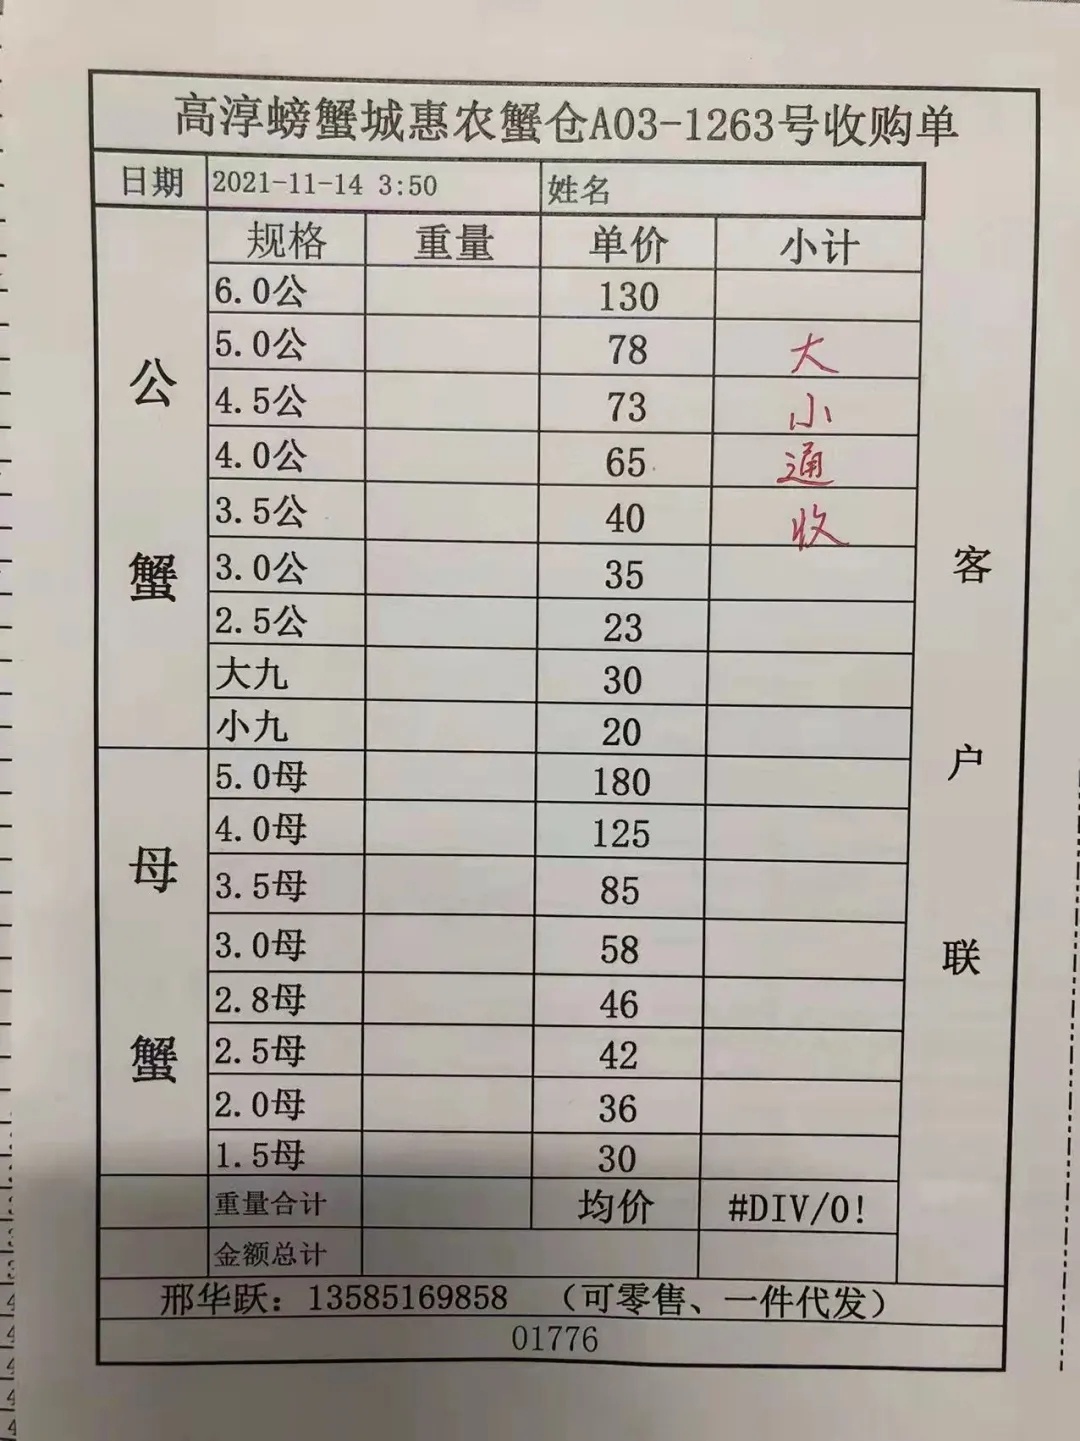 高淳螃蟹城惠农蟹仓A03-1263号收购单
日期 2021-11-14 3:50 姓名
规格 重量 单价 小计
公蟹
6.0公 130
5.0公 78 大
4.5公 73 小
4.0公 65 通
3.5公 40 收
3.0公 35
2.5公 23
大九 30
小九 20
母蟹
5.0母 180
4.0母 125
3.5母 85
3.0母 58
2.8母 46
2.5母 42
2.0母 36
1.5母 30
重量合计 均价 #DIV/0!
金额总计
客户联
邢华跃：13585169858 （可零售、一件代发）
01776